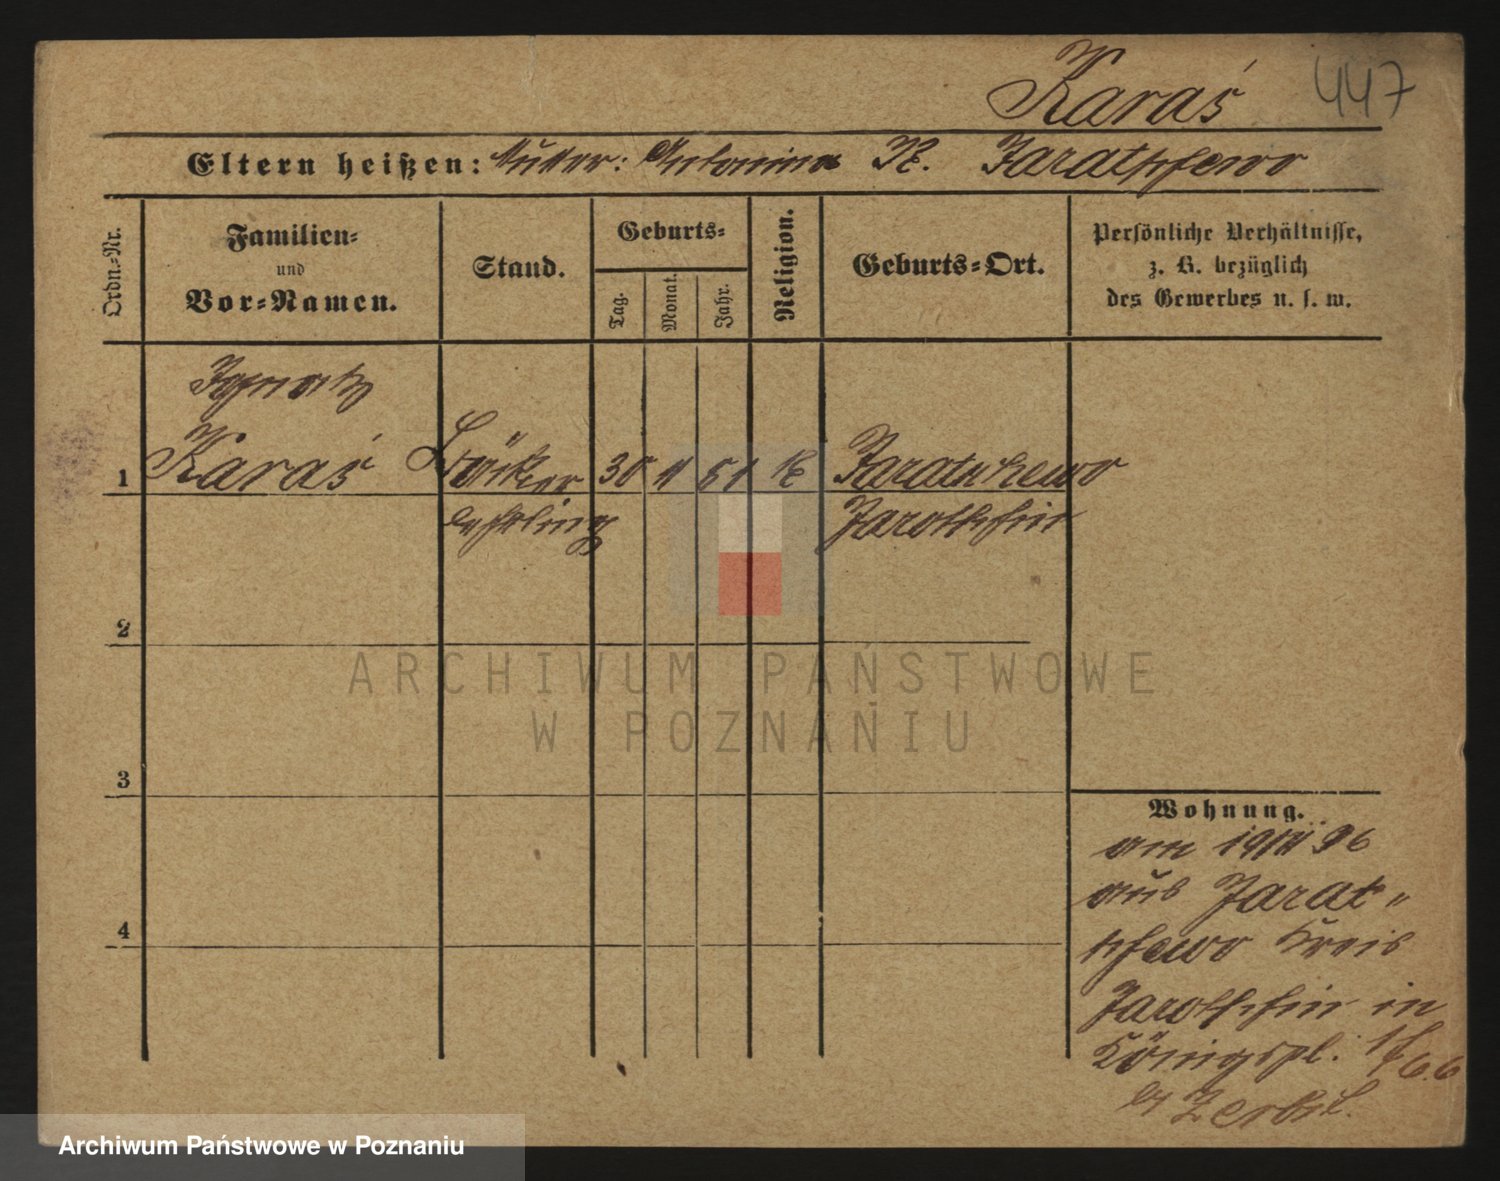 Karaś 447
Eltern heißen: Mutter: Antonina K. Jaratschewo
Ordn.-Nr.
Familien-
und
Vor-Namen.
Stand.
Geburts-
Tag.
Monat.
Jahr.
Religion.
Geburts-Ort.
Persönliche Verhältnisse,
z. B. bezüglich
des Gewerbes u. s. w.
Ignatz
1 Karaś Bäcker 30 K Jaratschewo
lehrling Jarotschin
2
3
4
Wohnung.
am 96
aus Jarat-
schewo Kreis
Jarotschin in
Königspl.
by
ARCHIWUM PAŃSTWOWE
W POZNANIU
Archiwum Państwowe w Poznaniu